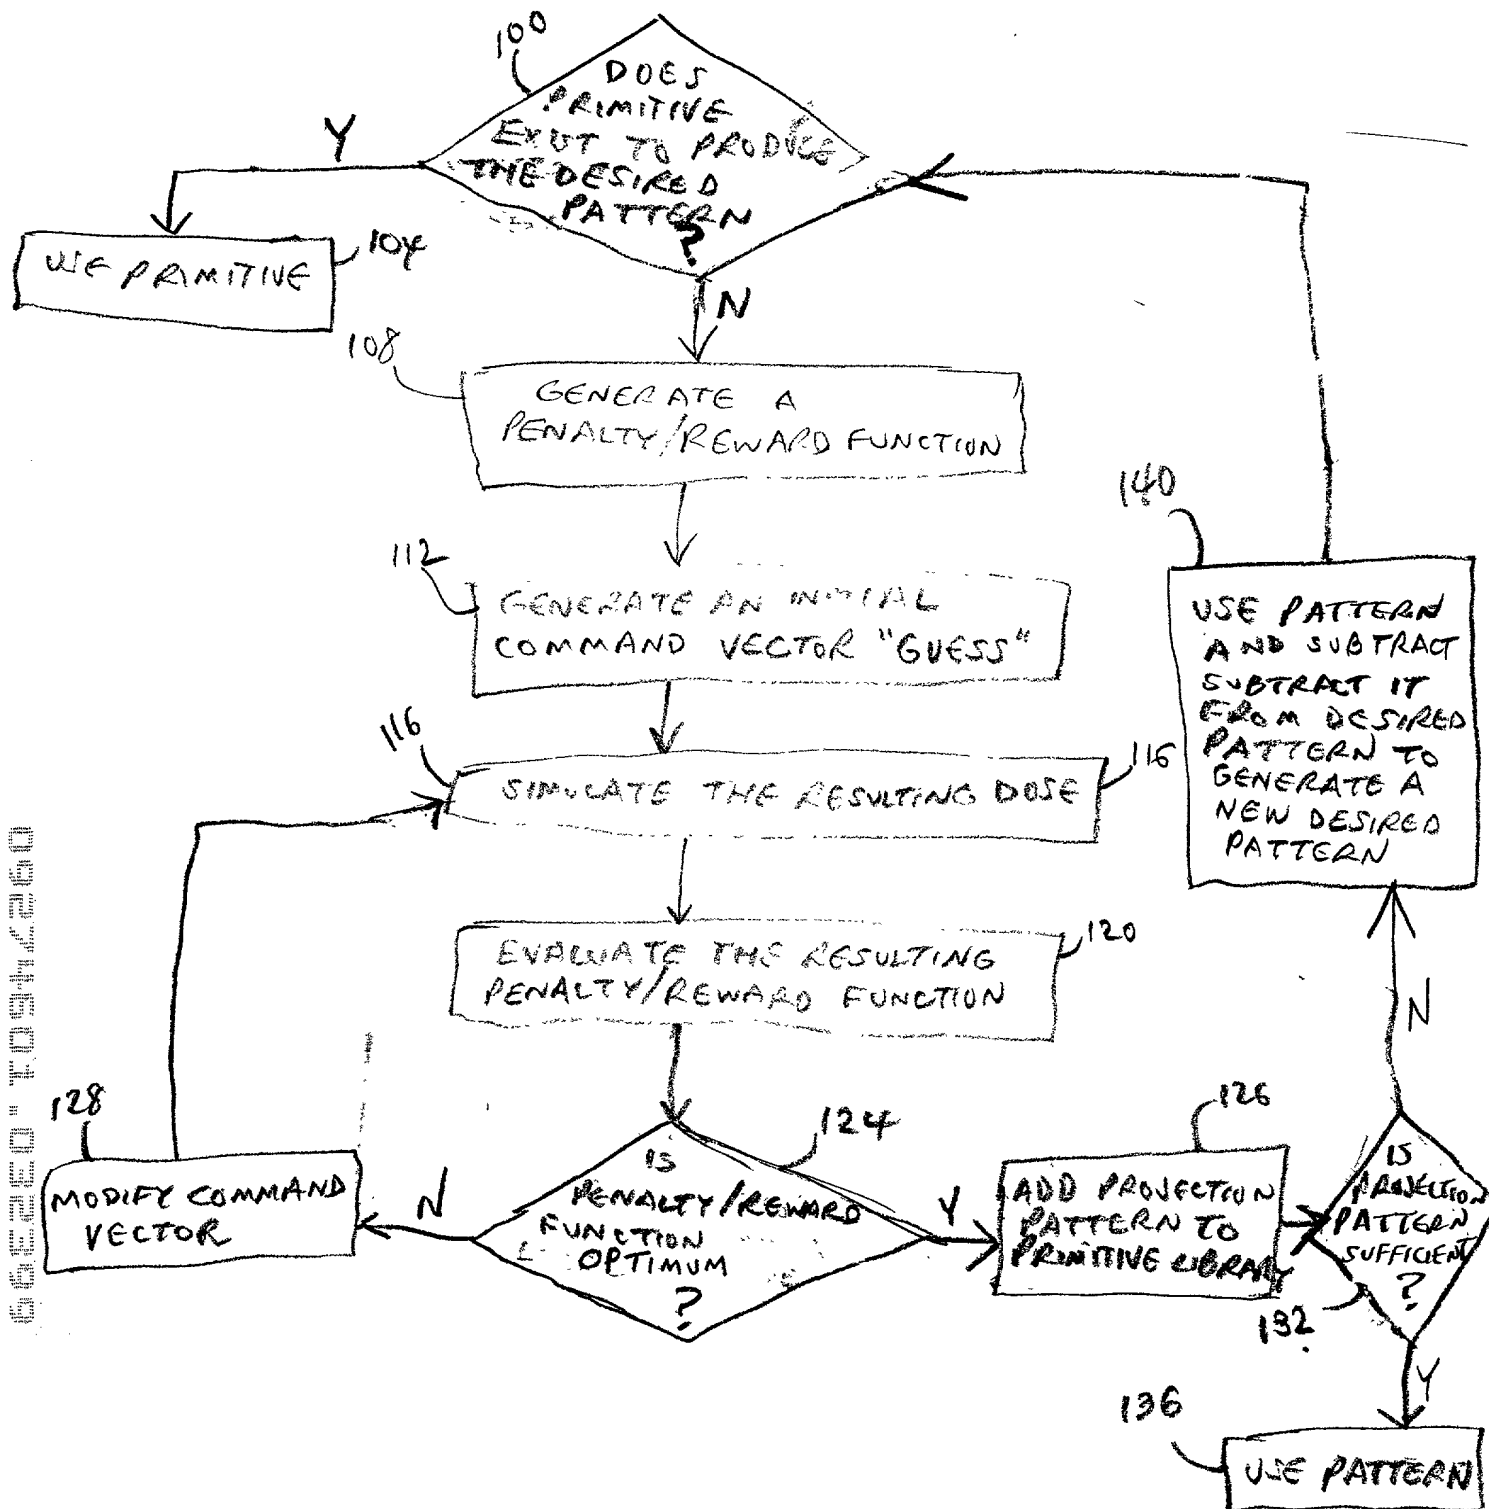 100
DOES
PRIMITIVE
EXIST TO PRODUCE
THE DESIRED
PATTERN
?
Y
N
USE PRIMITIVE
104
108
GENERATE A
PENALTY/REWARD FUNCTION
112
GENERATE AN INITIAL
COMMAND VECTOR "GUESS"
116
SIMULATE THE RESULTING DOSE
116
EVALUATE THE RESULTING
PENALTY/REWARD FUNCTION
120
124
IS
PENALTY/REWARD
FUNCTION
OPTIMUM
?
N
Y
128
MODIFY COMMAND
VECTOR
126
ADD PROJECTION
PATTERN TO
PRIMITIVE LIBRARY
IS
PROJECTION
PATTERN
SUFFICIENT
?
132
N
Y
140
USE PATTERN
AND SUBTRACT
SUBTRACT IT
FROM DESIRED
PATTERN TO
GENERATE A
NEW DESIRED
PATTERN
136
USE PATTERN
09274260.032399